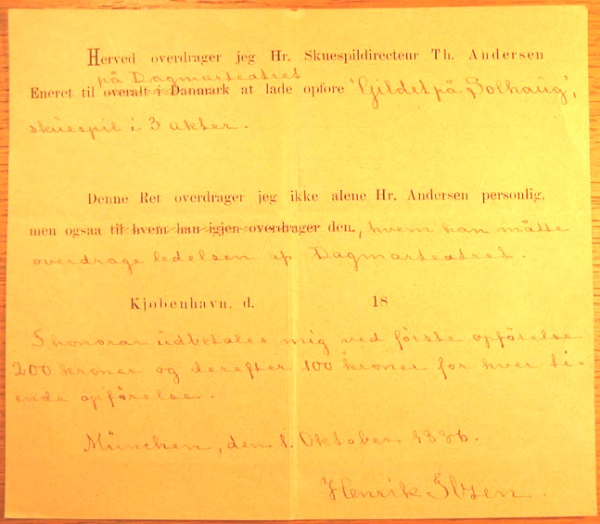 Herved overdrager jeg Hr. Skuespildirecteur Th. Andersen
på Dagmarteatret
Eneret til overalt i Danmark at lade opføre 'Gildet på Solhaug',
skuespil i 3 akter.
Denne Ret overdrager jeg ikke alene Hr. Andersen personlig,
men ogsaa til hvem han igjen overdrager den, hvem han måtte
overdrage ledelsen af Dagmarteatret.
Kjøbenhavn, d. 18
I honorar udbetales mig ved første opførelse
200 kroner og derefter 100 kroner for hver ti-
ende opførelse.
München, den 1. Oktober 1886.
Henrik Ibsen.